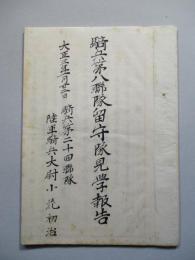 騎兵第八聯隊留守隊見学報告
大正三年一月廿一日 騎兵第二十四聯隊
陸軍騎兵大尉小花初治